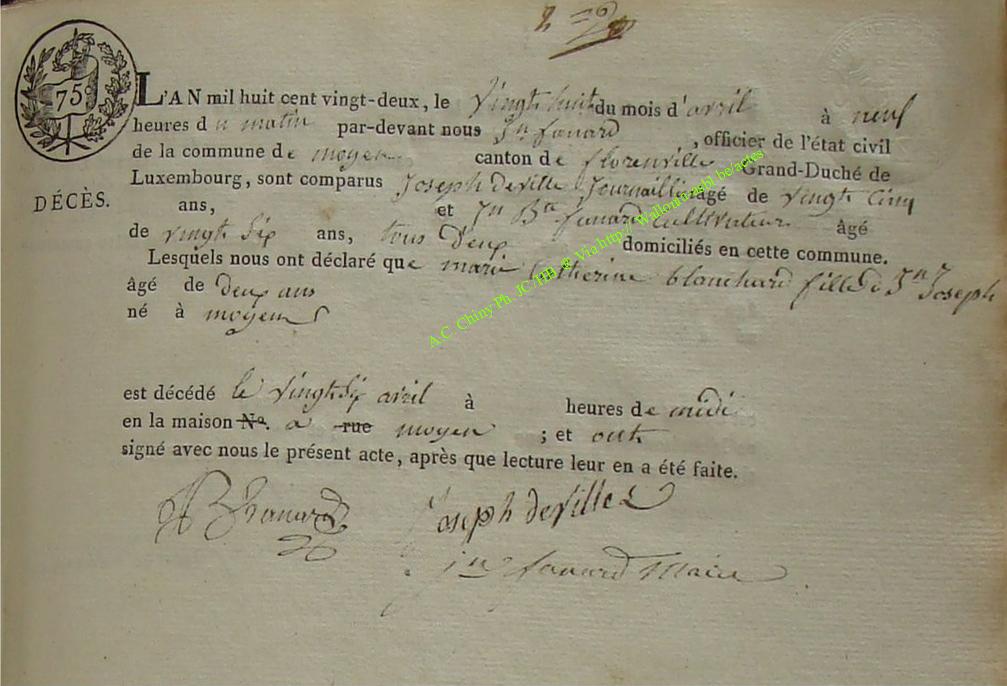 75 c
L'AN mil huit cent vingt-deux, le vingt huit du mois d'avril à neuf
heures du matin par-devant nous Jn fanard , officier de l'état civil
de la commune de moyen canton de florenville Grand-Duché de
DÉCÈS.
Luxembourg, sont comparus Joseph deville Journaillier âgé de vingt cinq
ans, et Jn Bte fanard cultivateur âgé
de vingt six ans, tous deux domiciliés en cette commune.
Lesquels nous ont déclaré que marie Catherine blanchard fille de Jn Joseph
âgé de deux ans
né à moyen
est décédé le vingt six avril à heures de midi
en la maison No. a rue moyen ; et ont
signé avec nous le présent acte, après que lecture leur en a été faite.
JB fanard Joseph deville
jn fanard Maire
A.C. Chiny Ph. JC/HB & Via http://Wallonia.asbl.be/actes